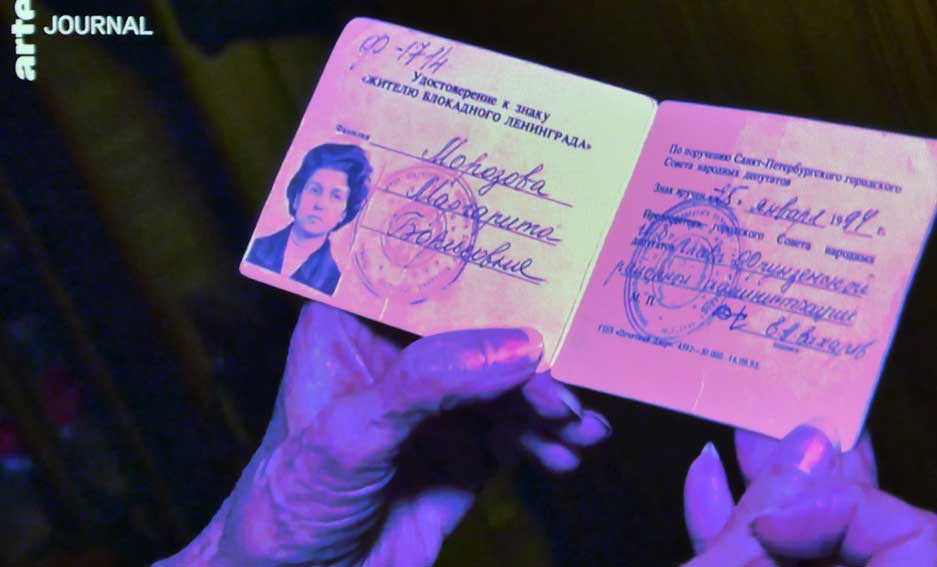 arte JOURNAL
Ф-1714
Удостоверение к знаку
«ЖИТЕЛЮ БЛОКАДНОГО ЛЕНИНГРАДА»
Фамилия
Морозова
Маргарита
Борисовна
По поручению Санкт-Петербургского городского
Совета народных депутатов
Знак вручен «25» января 1994 г.
городского Совета народных
депутатов
районной администрации
М. П.
подпись
ГПП «Печатный Двор»